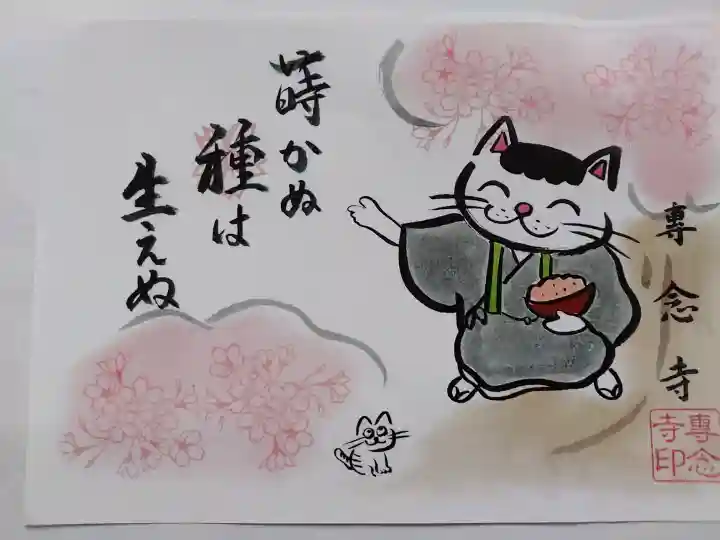 蒔かぬ
種は
生えぬ
専念寺
専念
寺印